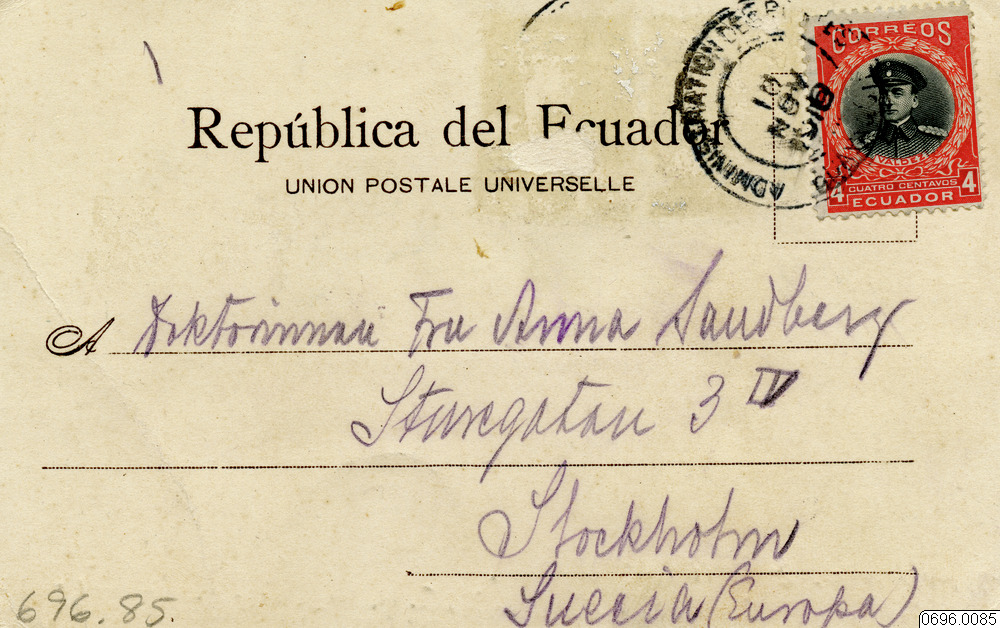 República del Ecuador
UNION POSTALE UNIVERSELLE
ADMINISTRATION DES
CORREOS
VALDEZ
4 CUATRO CENTAVOS 4
ECUADOR
A Doktorinnan Fru Anna Sandberg
Sturegatan 3 IV
Stockholm
Suecia (Europa)
696.85.
0696.0085